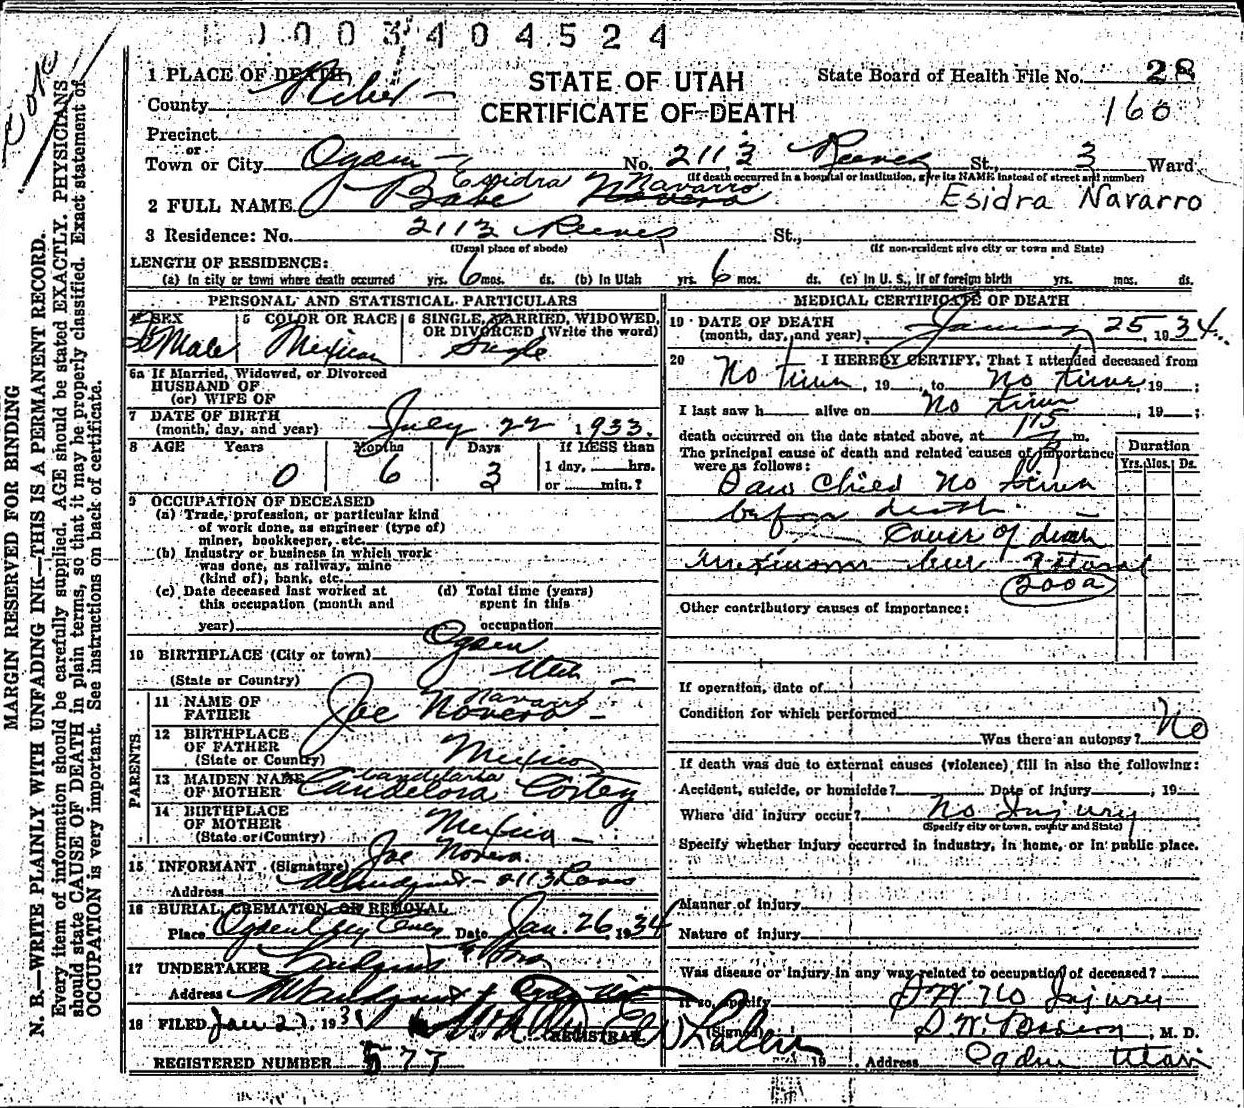 0003404524
core
MARGIN RESERVED FOR BINDING
N. B.—WRITE PLAINLY WITH UNFADING INK—THIS IS A PERMANENT RECORD.
Every item of information should be carefully supplied. AGE should be stated EXACTLY. PHYSICIANS
should state CAUSE OF DEATH in plain terms, so that it may be properly classified. Exact statement of
OCCUPATION is very important. See instructions on back of certificate.
1 PLACE OF DEATH
County Weber
STATE OF UTAH
CERTIFICATE OF DEATH
State Board of Health File No. 28
160
Precinct
or
Town or City Ogden No. 2113 Reeves St., 3 Ward
(If death occurred in a hospital or institution, give its NAME instead of street and number)
Esidra Navarro
2 FULL NAME Babe Novero Esidra Navarro
3 Residence: No. 2113 Reeves St.,
(Usual place of abode) (If non-resident give city or town and State)
LENGTH OF RESIDENCE:
(a) In city or town where death occurred yrs. 6 mos. ds. (b) In Utah yrs. 6 mos. ds. (c) In U. S., if of foreign birth yrs. mos. ds.
PERSONAL AND STATISTICAL PARTICULARS
4 SEX FeMale
5 COLOR OR RACE Mexican
6 SINGLE, MARRIED, WIDOWED, OR DIVORCED (Write the word) Single
6a If Married, Widowed, or Divorced
HUSBAND OF
(or) WIFE OF
7 DATE OF BIRTH
(month, day, and year) July 22 1933.
8 AGE Years Months Days If LESS than
0 6 3 1 day, hrs.
or min.?
9 OCCUPATION OF DECEASED
(a) Trade, profession, or particular kind
of work done, as engineer (type of)
miner, bookkeeper, etc.
(b) Industry or business in which work
was done, as railway, mine
(kind of), bank, etc.
(c) Date deceased last worked at
this occupation (month and
year)
(d) Total time (years)
spent in this
occupation
10 BIRTHPLACE (City or town) Ogden
(State or Country) Utah
PARENTS.
11 NAME OF
FATHER Joe Novero Navarro
12 BIRTHPLACE
OF FATHER
(State or Country) Mexico
13 MAIDEN NAME
OF MOTHER Candelora Candelaria Cortez
14 BIRTHPLACE
OF MOTHER
(State or Country) Mexico
15 INFORMANT (Signature) Joe Novero
Address 2113
16 BURIAL, CREMATION OR REMOVAL
Place Ogden City Cemy Date Jan. 26, 1934
17 UNDERTAKER
Address
18 FILED Jan 27, 193
REGISTRAR
REGISTERED NUMBER 577
MEDICAL CERTIFICATE OF DEATH
19 DATE OF DEATH
(month, day, and year) January 25, 1934
20 I HEREBY CERTIFY, That I attended deceased from
No time, 19 , to No time, 19 ;
I last saw h alive on No time, 19 ;
death occurred on the date stated above, at m.
The principal cause of death and related causes of importance
were as follows:
Duration
Yrs. Mos. Ds.
Saw child No time
before death
Cause of death
natural
200a
Other contributory causes of importance:
If operation, date of
Condition for which performed
Was there an autopsy? No
If death was due to external causes (violence) fill in also the following:
Accident, suicide, or homicide? Date of injury , 19
Where did injury occur? No Injury
(Specify city or town, county and State)
Specify whether injury occurred in industry, in home, or in public place.
Manner of injury
Nature of injury
Was disease or injury in any way related to occupation of deceased?
If so, specify No Injury
(Signed) M. D.
19 Address Ogden Utah